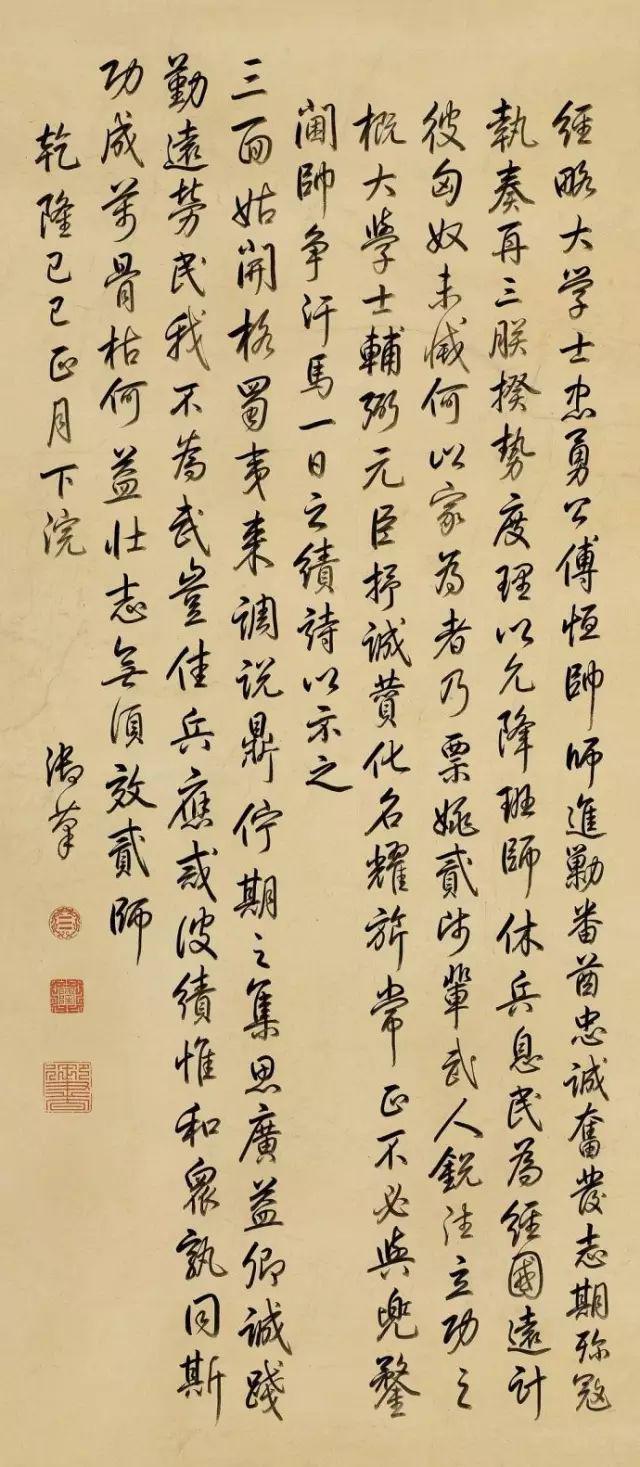 經略大学士忠勇公傅恒帥師進勦番酋忠誠奮發志期殄寇
執奏再三朕揆勢度理以允降班師休兵息民為經國遠計
彼匈奴未滅何以家為者乃票姚貳師輩武人銳注立功之
概大學士輔弼元臣抒誠贊化名耀旂常正不必與兜鍪
閫帥争汗馬一日之績詩以示之
三面姑開格蜀夷來調説鼎佇期之集思廣益卿誠踐
勤遠勞民我不為武豈佳兵應戒彼績惟和衆孰同斯
功成萬骨枯何益壯志無須效貳師
乾隆己巳正月下浣 御筆